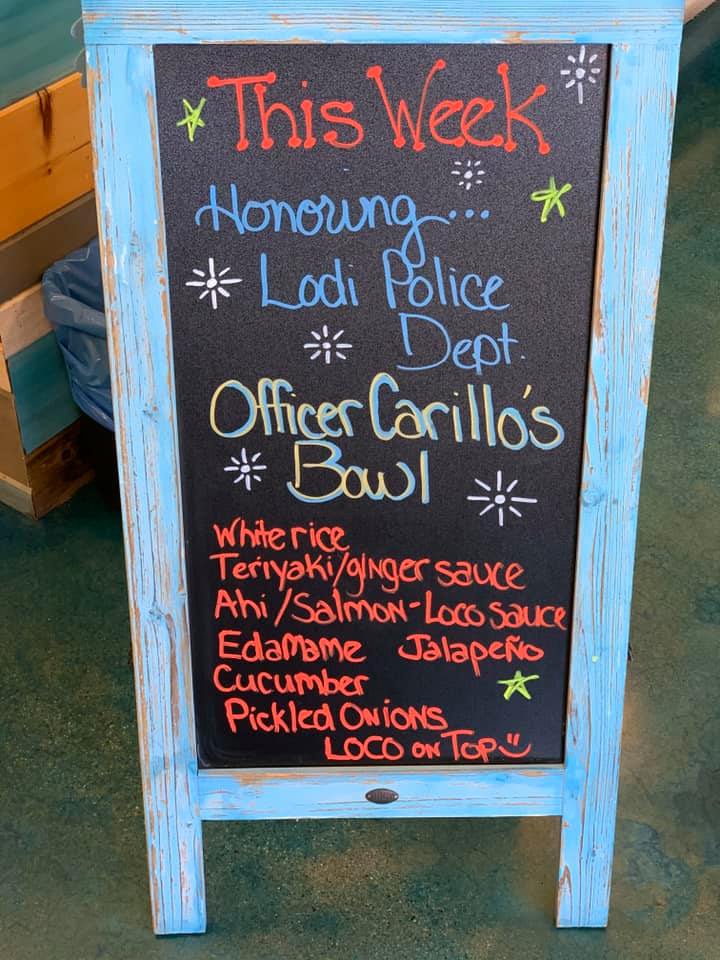 This Week
Honoring...
Lodi Police
Dept.
Officer Carillo's
Bowl
White rice
Teriyaki/ginger sauce
Ahi/Salmon-Loco sauce
Edamame Jalapeño
Cucumber
Pickled Onions
LOCO on Top